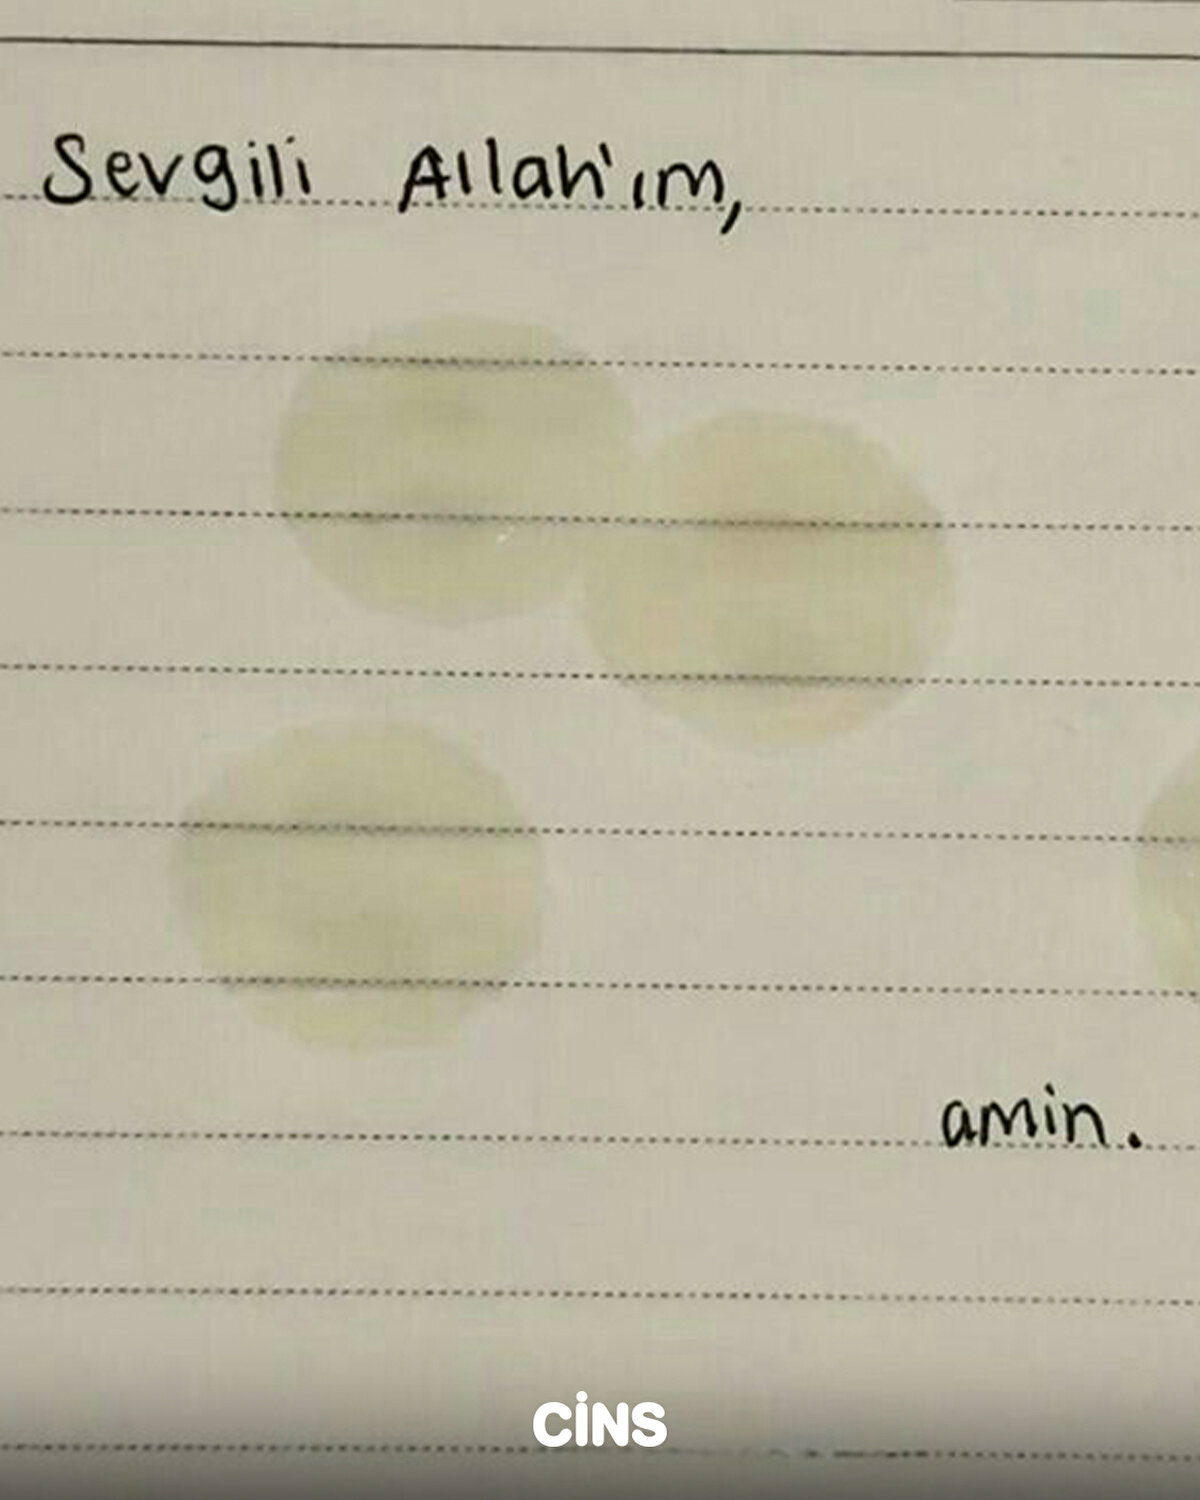 Sevgili Allah'ım,
amin.
CİNS